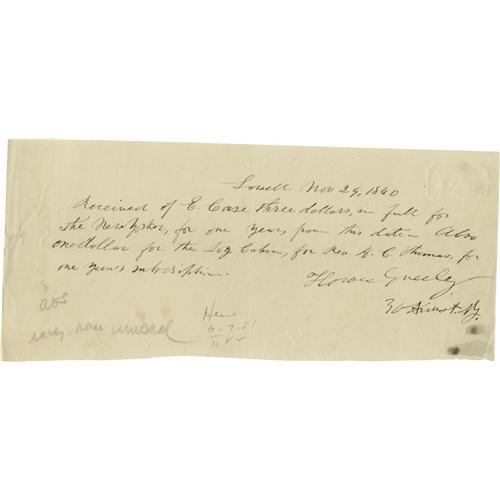 Lowell Nov 29, 1840
Received of E. Case three dollars, in full for
the New-Yorker, for one year, from this date. Also
one dollar for the Log Cabin, for Rev. C. Thomas, for
one year's subscription.
Horace Greeley
30 Ann st. N.Y.
ads
early. rare unusual
6-7-51